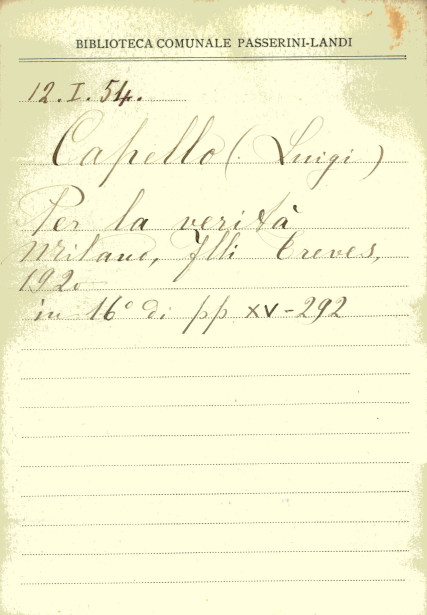 BIBLIOTECA COMUNALE PASSERINI-LANDI
12.I.54.
Capello (Luigi)
Per la verità
Milano, Flli Treves,
1920
in 16° di pp XV-292